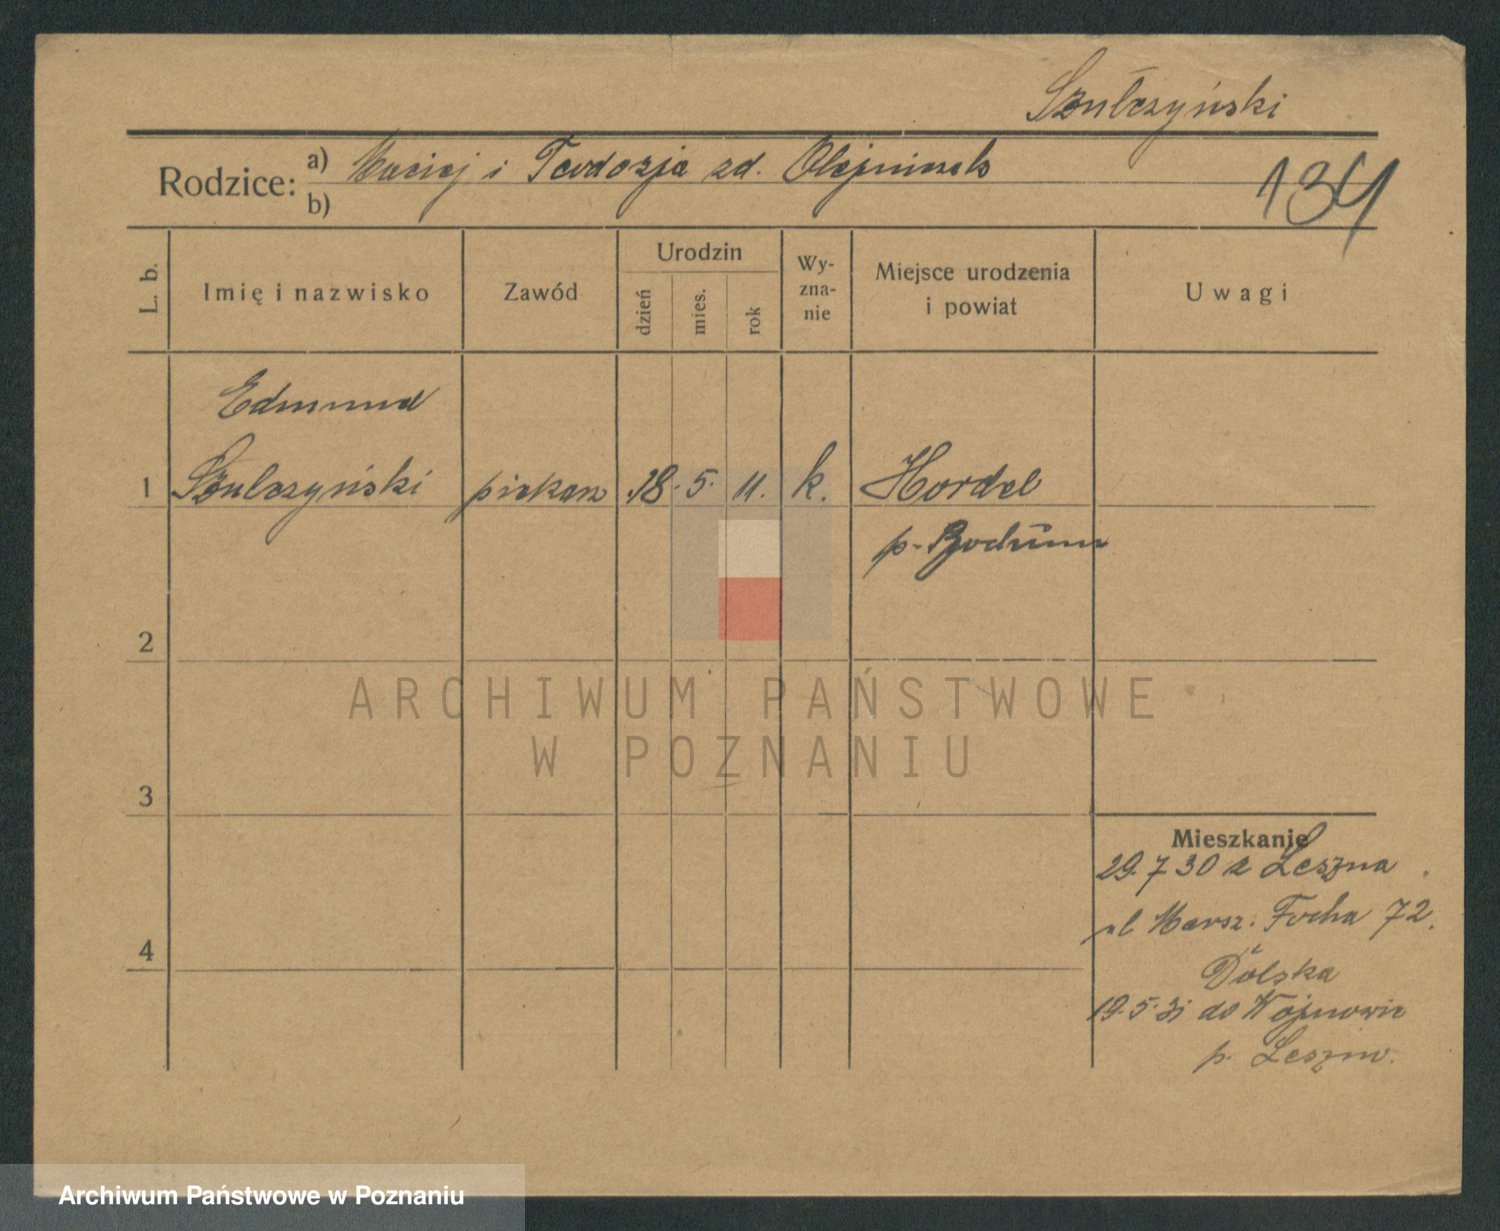 Szulczyński
Rodzice: a) Maciej i Teodozja zd. Olejniczak
b)
134
L. b.
Imię i nazwisko
Zawód
Urodzin
dzień
mies.
rok
Wy-
zna-
nie
Miejsce urodzenia
i powiat
Uwagi
Edmund
1 Szulczyński piekarz 18. 5. 11. k. Hordel
p. Bochum
2
ARCHIWUM PAŃSTWOWE
W POZNANIU
3
Mieszkanie
29. 7 30 z Leszna
ul. Marsz. Focha 72.
4
Dolska
19. 5. 31 do Wojnowic
p. Leszno.
Archiwum Państwowe w Poznaniu